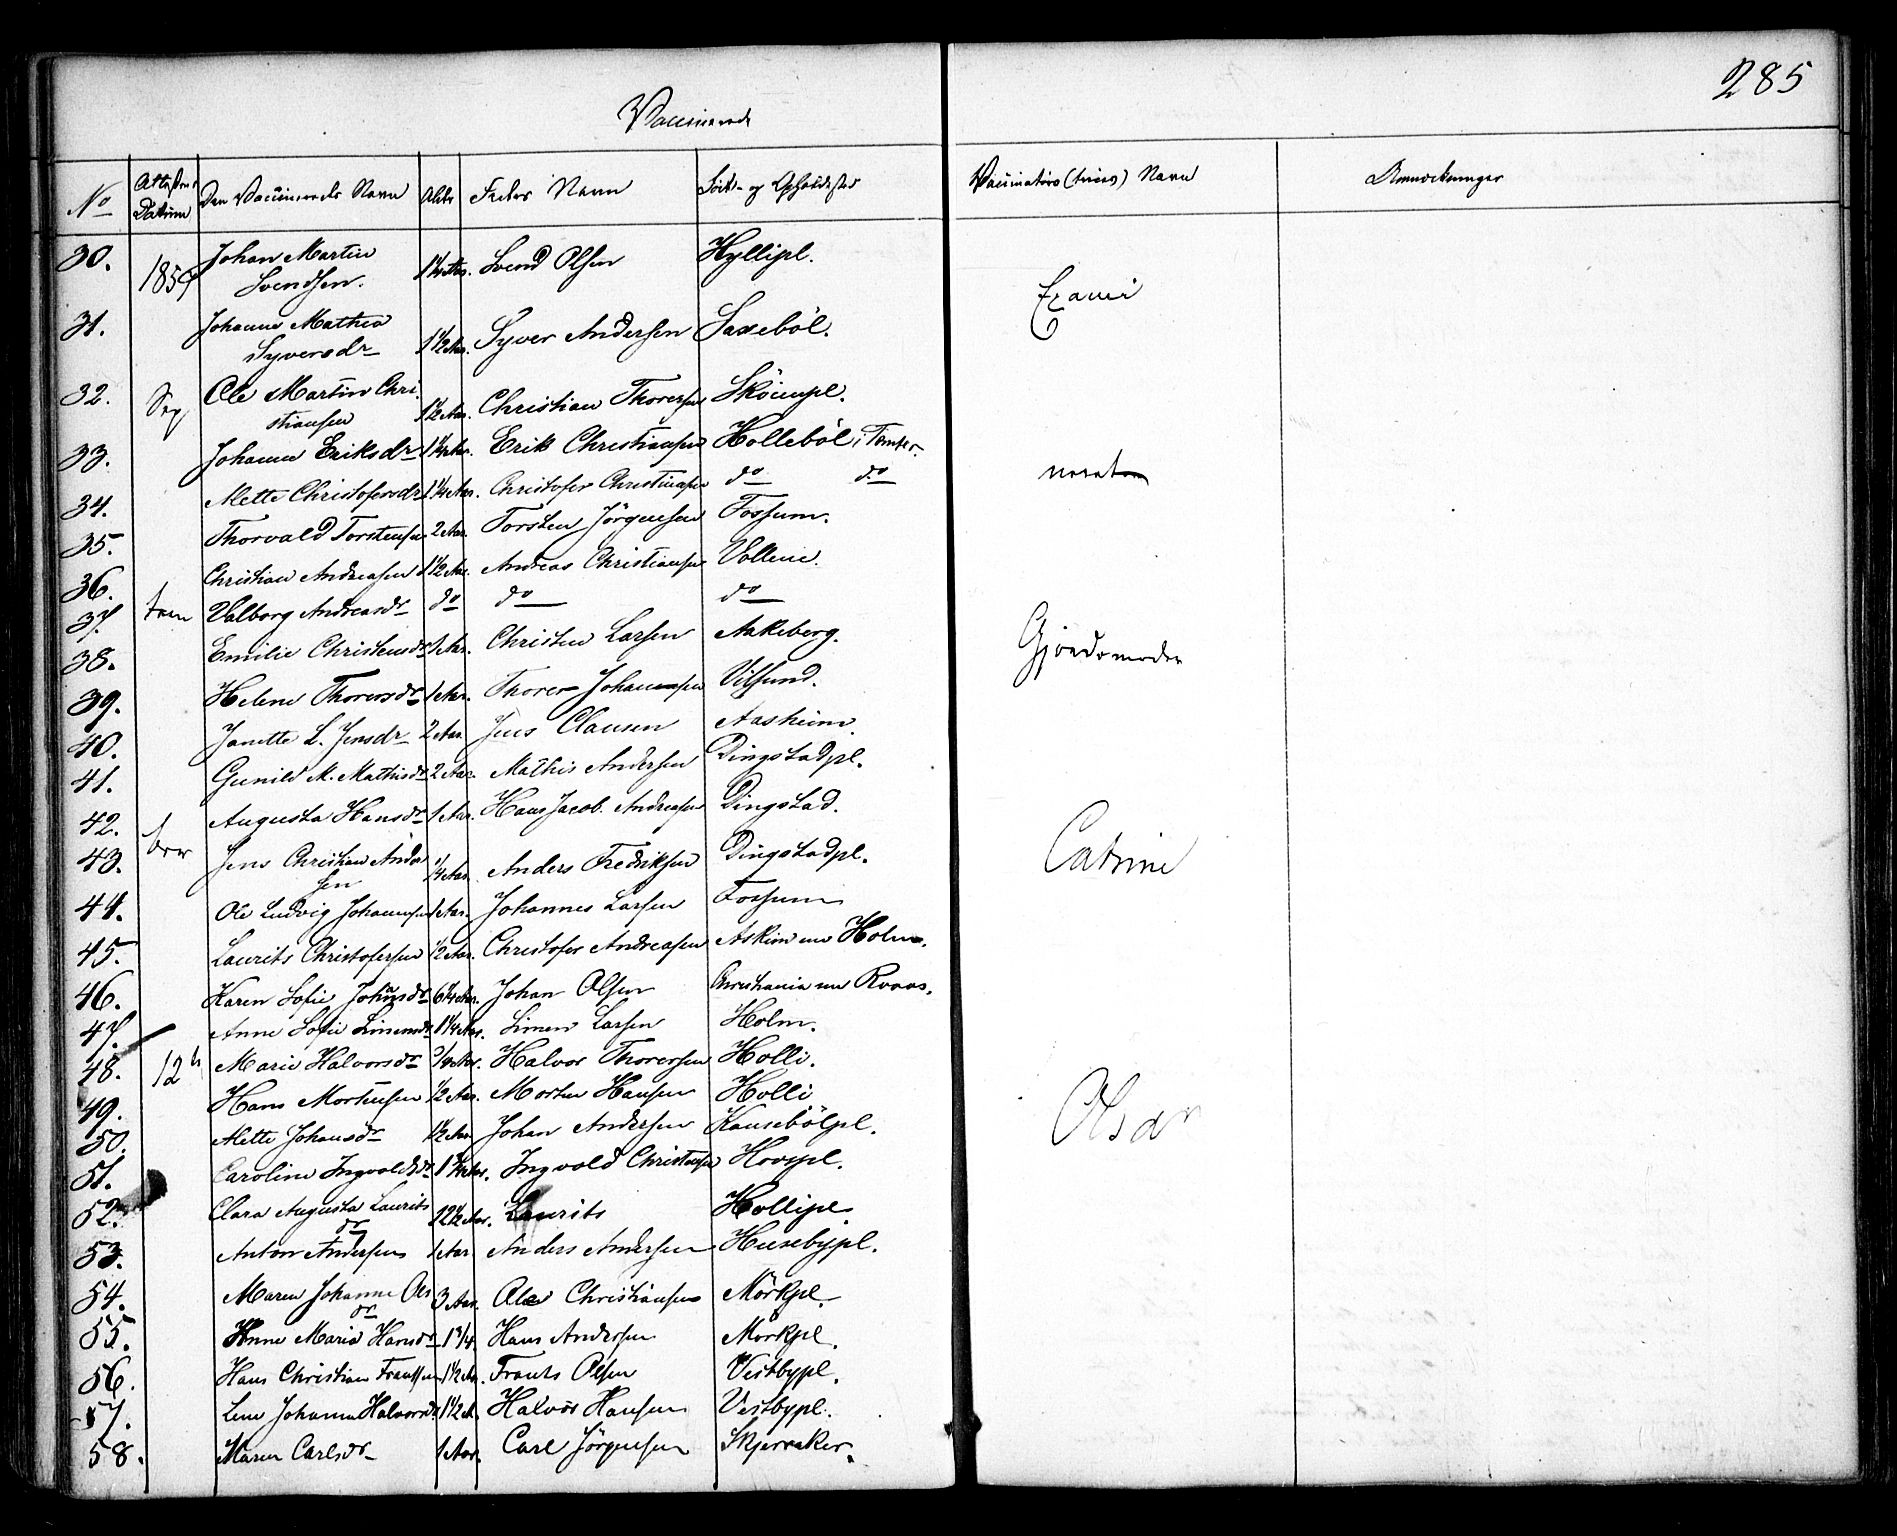 285
Vaccinerede
No Attestens Datum Den Vaccineredes Navn Alder Faders Navn Føde- og Opholdssted Vaccinators (trices) Navn Anmærkninger
30. 1859 Johan Martin Svendsen. 1 1/4 Aar. Svend Olsen Hyllipl.
Exami
31. Johanne Mathea Syversdr 1 1/2 Aar. Syver Andersen Saxebøl.
32. Sep Ole Martin Christiansen 1 1/2 Aar. Christian Thoresen Sköienpl.
33. Johanne Eriksdr 1 1/4 Aar. Erik Christiansen Holleböl i Tomter.
neret
34. Mette Christofersdr 1 1/4 Aar. Christofer Christiansen do do
35. Thorvald Torstensen 2 Aar. Torsten Jörgensen Fossum.
36. Christian Andreasen 1 1/2 Aar. Andreas Christiansen Vollene.
37. tem Valborg Andreasdr do do do
38. Emilie Christensdr 1 Aar. Christen Larsen Aakeberg.
Gjordemoder
39. Helene Thorersdr 1 Aar. Thorer Johannesen Vilsund.
40. Janette L. Jensdr 2 Aar. Jens Clausen Aasheim.
41. Gunild M. Mathisdr 2 Aar. Mathis Andersen Dingstadpl.
42. Augusta Hansdr 1 Aar. Hans Jacob Andreasen Dingstad.
43. ber Jens Christian Andersen 1/4 Aar. Anders Fredriksen Dingstadpl.
Catrine
44. Ole Ludvig Johannesen 1 Aar. Johannes Larsen Fossum
45. Laurits Christofersen 1/2 Aar. Christofer Andreasen Askim nu Holm.
46. Karen Sofie Johansdr 6 1/4 Aar. Johan Olsen Christiania nu Kraas.
47. Anne Sofie Simensdr 1 1/4 Aar. Simen Larsen Holm.
48. 12te Marie Halvorsdr 3/4 Aar. Halvor Thoresen Holli.
49. Hans Mortensen 1/2 Aar. Morten Hansen Holli
50. Mette Johansdr 1 1/2 Aar. Johan Andersen Kausebölpl.
Olsdr
51. Caroline Ingvoldsdr 1 1/2 Aar. Ingvold Christensen Hovspl.
52. Clara Augusta Lauritsdr 12 1/2 Aar. Laurits Hollipl.
53. Anton Andersen 1 Aar Anders Andersen Husebypl.
54. Maren Johanne Olsdr 3 Aar. Ole Christiansen Mörkpl.
55. Anne Marie Hansdr 1 3/4 Hans Andersen Mörkpl.
56. Hans Christian Frantsen 1 1/2 Aar. Frants Olsen Vestbypl.
57. Lene Johanne Halvorsdr 1 1/2 A. Halvor Hansen Vestbypl.
58. Maren Carlsdr 1 Aar. Carl Jörgensen Skjerraker.